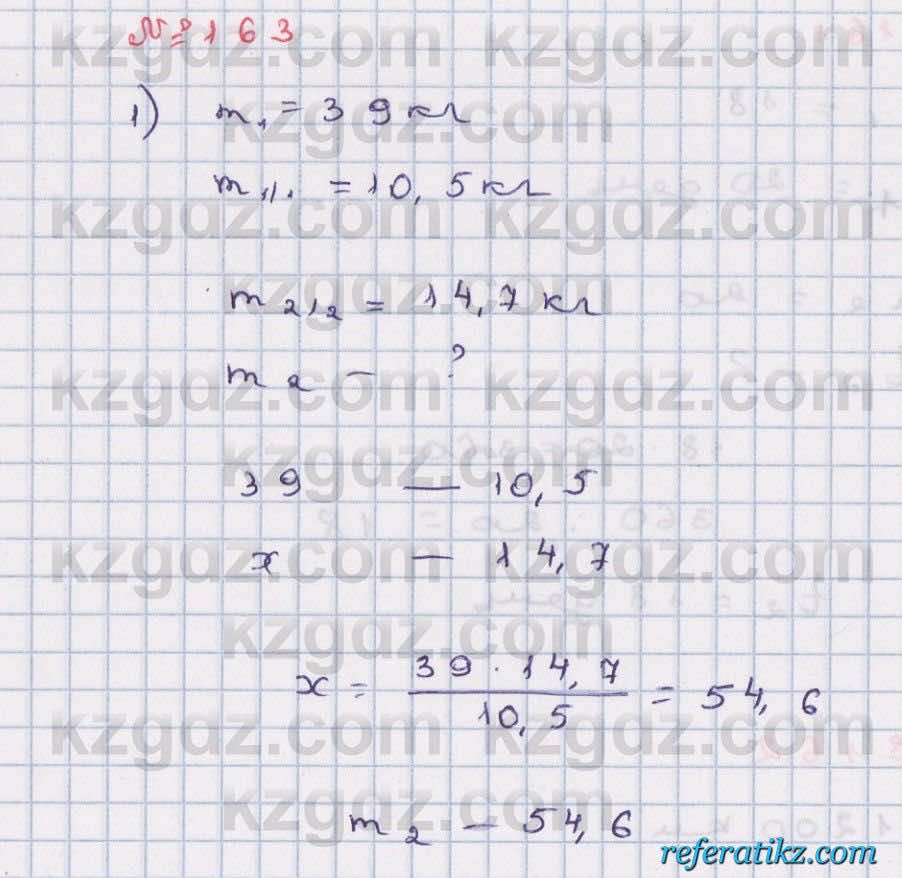 № 163
1) m₁ = 39 кг
m₁,₁. = 10,5 кг
m₂,₂ = 14,7 кг
m₂ — ?
39 — 10,5
x — 14,7
x = 39 · 14,7 / 10,5 = 54,6
m₂ — 54,6
kzgdz.com
referatikz.com